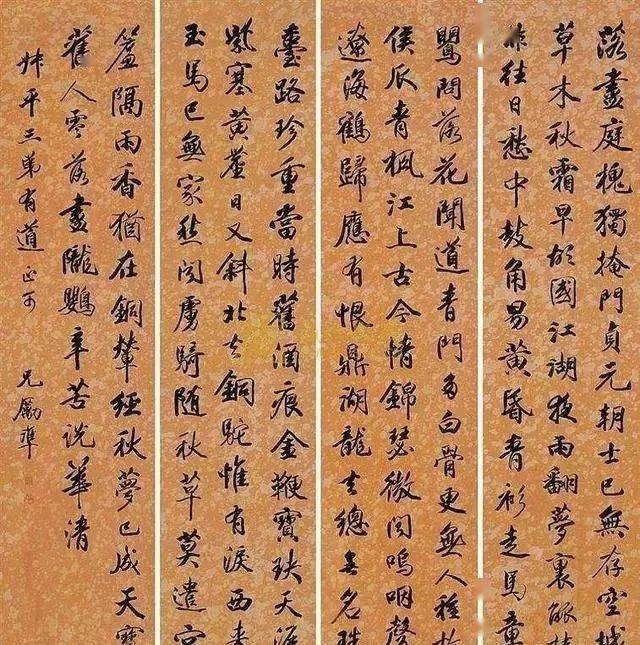 落盡庭槐獨掩門貞元朝士已無存空城
草木秋霜早故國江湖夜雨翻夢裏觚
非往日愁中鼓角易黃昏青衫走馬章
鸎問落花聞道青門多白骨更無人種故
侯瓜青楓江上古今情錦瑟微聞嗚咽聲
遼海鶴歸應有恨鼎湖龍去總無名珠
臺路珍重當時舊酒痕金鞭寶玦天涯
紫塞黃蘆日又斜北去銅駝惟有淚西來
玉馬已無家愁聞虜騎隨秋草莫遣宮
簾隔雨香猶在銅輦經秋夢已成天寶
舊人零落盡隴鸚辛苦說華清
叔平三弟有道正可
兄勵準